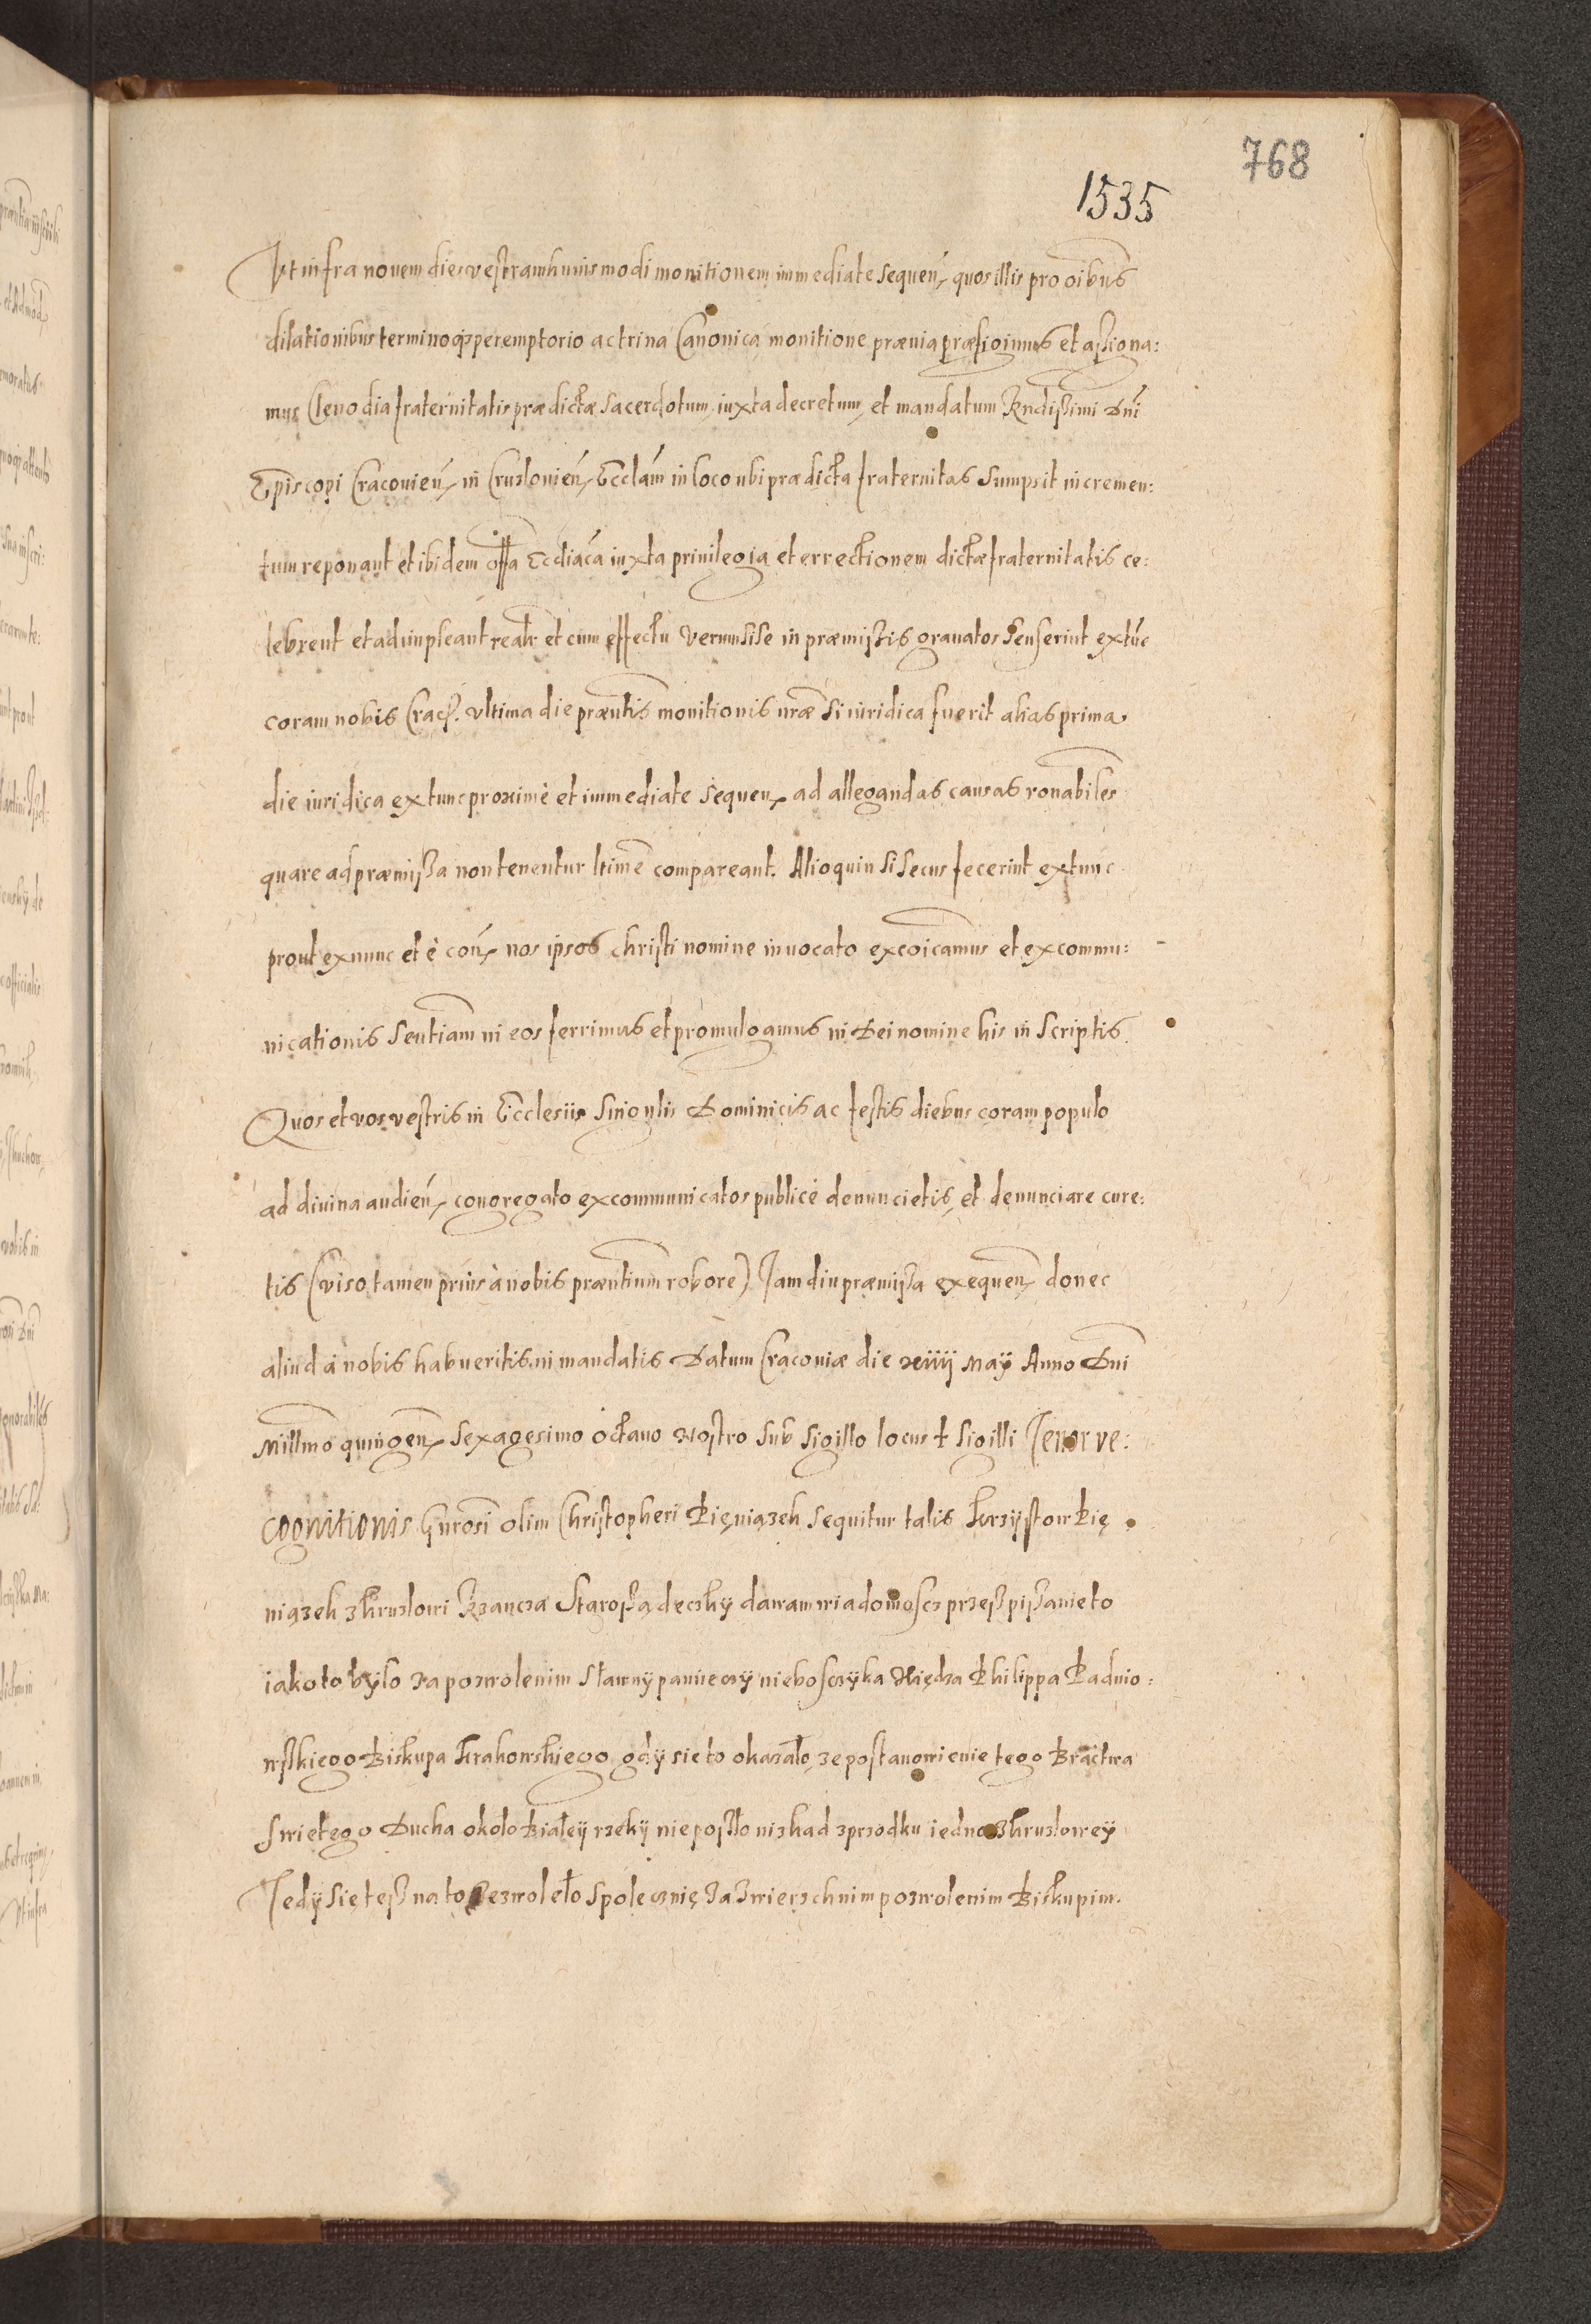 768
1535
Vt infra nouem dies vestram huiusmodi monitionem immediate sequeń, quos illis pro oibus
dilationibus terminoq; peremptorio ac trina Canonica monitione praeuia praefigimus et assigna:
mus Clenodia fraternitatis praedictae sacerdotum, iuxta decretum, et mandatum Rndissimi Dni
Episcopi Cracouień, in Cruzlouień, Ecclam in loco ubi praedicta fraternitas sumpsit incremen:
tum reponant et ibidem offa Ecclīaca iuxta priuilegia et errectionem dictae fraternitatis ce:
lebrent et adimpleant realr et cum effectu Verum si se in praemissis grauatos senserint extūc
coram nobis Crac. Vltima die praentis monitionis nrae si iuridica fuerit alias prima
die iuridica extunc proximè et immediate sequen, ad allegandas causas ronabiles
quare ad praemissa non tenentur ltime compareant. Alioquin si secus fecerint extunc
prout exnunc et è conu, nos ipsos christi nomine inuocato excoicamus et excommu:
nicationis sentiam in eos ferrimus et promulgamus in Dei nomine his in scriptis
Quos et vos vestris in Ecclesiis singulis Dominicis ac festis diebus coram populo
ad diuina audień, congregato excommunicatos publicè denuncietis, et denunciare cure:
tis (viso tamen prius à nobis praentium robore) Tam diu praemissa exequen, donec
aliud à nobis habueritis in mandatis Datum Cracouiae die xiiij Maÿ Anno Dni
Millmo quingen, sexagesimo octauo Nostro sub sigillo locus † sigilli Tenor re:
cognitionis Gnrosi olim Christopheri Pięniązek sequitur talis Krzÿstow Pię
niązek z Kruzlowi Rzancza Starossądeczkÿ dawam wiadomoscz przess pissanie to
iako to bÿlo za pozwolenim sławnÿ pamieczÿ nieboszczÿka Xiędza Philippa Padnio:
wskiego Biskupa Krakowskiego gdÿ sie to okazało ze postanowienie tego Bractwa
swietego Ducha około Białeÿ rzekÿ nie posło niskad z przodku iedno z Kruzloweÿ
Tedÿ się tess na to zezwoleło spolecznię za zwierzchnim pozwolenim Biskupim.